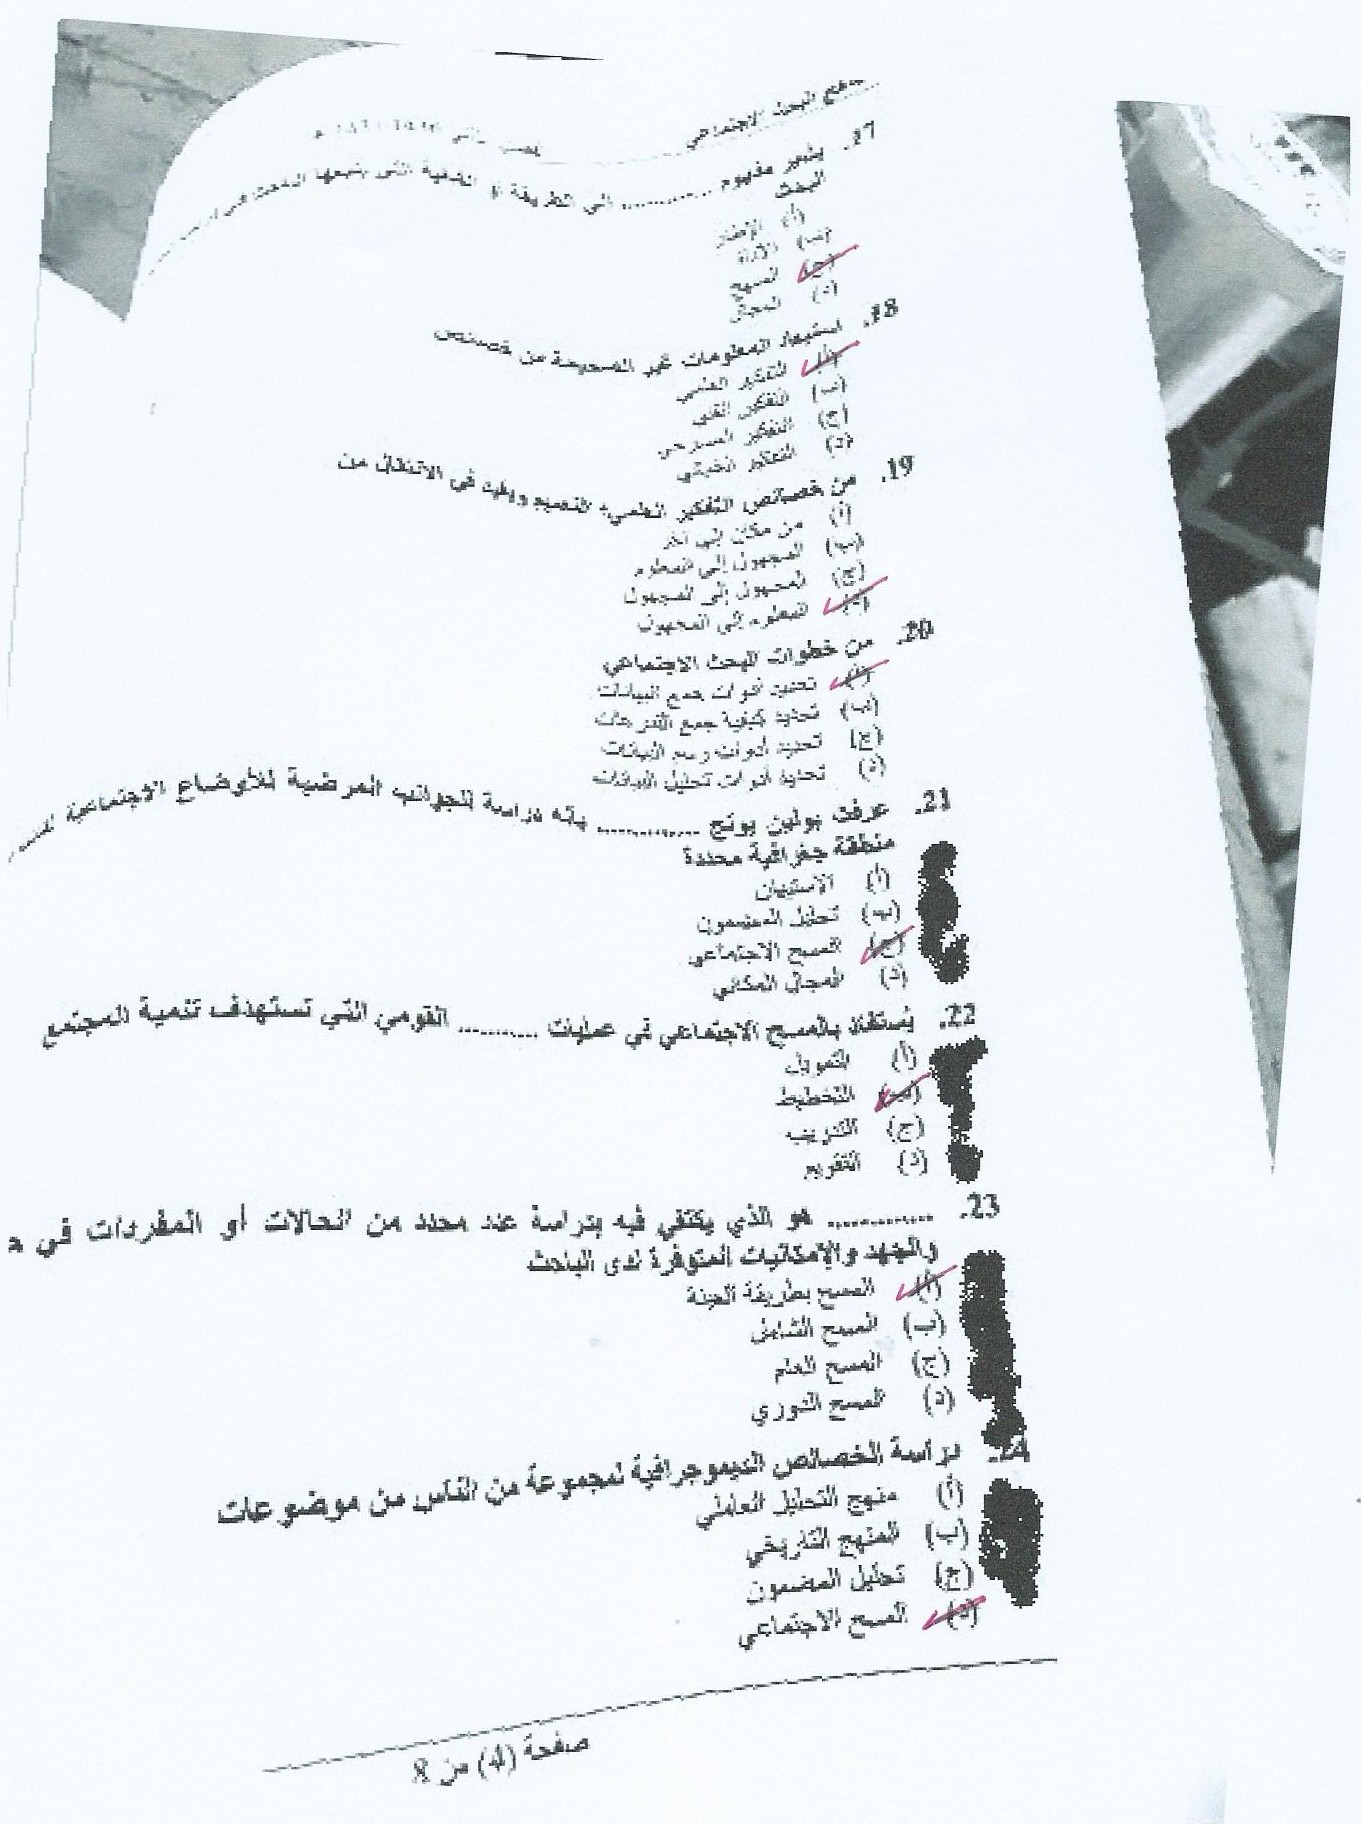 مناهج البحث الاجتماعي
17. يشير مفهوم ............ إلى الطريقة أو الكيفية التي يتبعها الباحث في
البحث
(أ) الإطار
(ب) الأداة
(ج) المنهج
(د) المجال
18. استبعاد المعلومات غير الصحيحة من خصائص
(أ) التفكير العلمي
(ب) التفكير الفني
(ج) التفكير المسرحي
(د) التفكير الخيالي
19. من خصائص التفكير العلمي؛ التعميم ويفيد في الانتقال من
(أ) من مكان إلى آخر
(ب) المجهول إلى المعلوم
(ج) المجهول إلى المجهول
(د) المعلوم إلى المجهول
20. من خطوات البحث الاجتماعي
(أ) تحديد أدوات جمع البيانات
(ب) تحديد كيفية جمع التبرعات
(ج) تحديد أدوات رسم البيانات
(د) تحديد أدوات تحليل البيانات
21. عرفت بولين يونج .............. بأنه دراسة للجوانب المرضية للأوضاع الاجتماعية
منطقة جغرافية محددة
(أ) الاستبيان
(ب) تحليل المضمون
(ج) المسح الاجتماعي
(د) المجال المكاني
22. يُستفاد بالمسح الاجتماعي في عمليات ........... القومي التي تستهدف تنمية المجتمع
(أ) التمويل
(ب) التخطيط
(ج) التدريب
(د) التقويم
23. .............. هو الذي يكتفي فيه بدراسة عدد محدد من الحالات أو المفردات في
والجهد والإمكانيات المتوفرة لدى الباحث
(أ) المسح بطريقة العينة
(ب) المسح الشامل
(ج) المسح العام
(د) المسح الدوري
24. دراسة الخصائص الديموجرافية لمجموعة من الناس من موضوعات
(أ) منهج التحليل العاملي
(ب) المنهج التاريخي
(ج) تحليل المضمون
(د) المسح الاجتماعي
صفحة (4) من 8